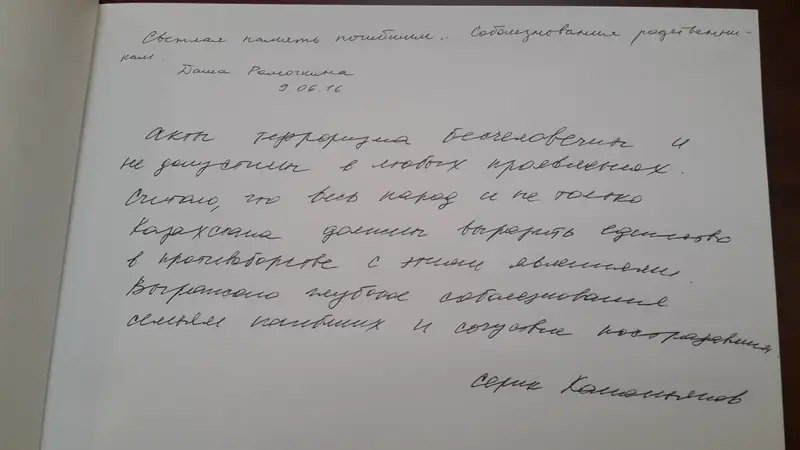 Светлая память погибшим. Соболезнования родственни-
кам.
Даша Рамочкина
9.06.16
Акты терроризма бесчеловечны и
не допустимы в любых проявлениях.
Считаю, что весь народ и не только
Казахстана должны выразить единство
в противоборстве с этими явлениями.
Выражаю глубокие соболезнования
семьям погибших и сочувствие пострадавшим.
Серик